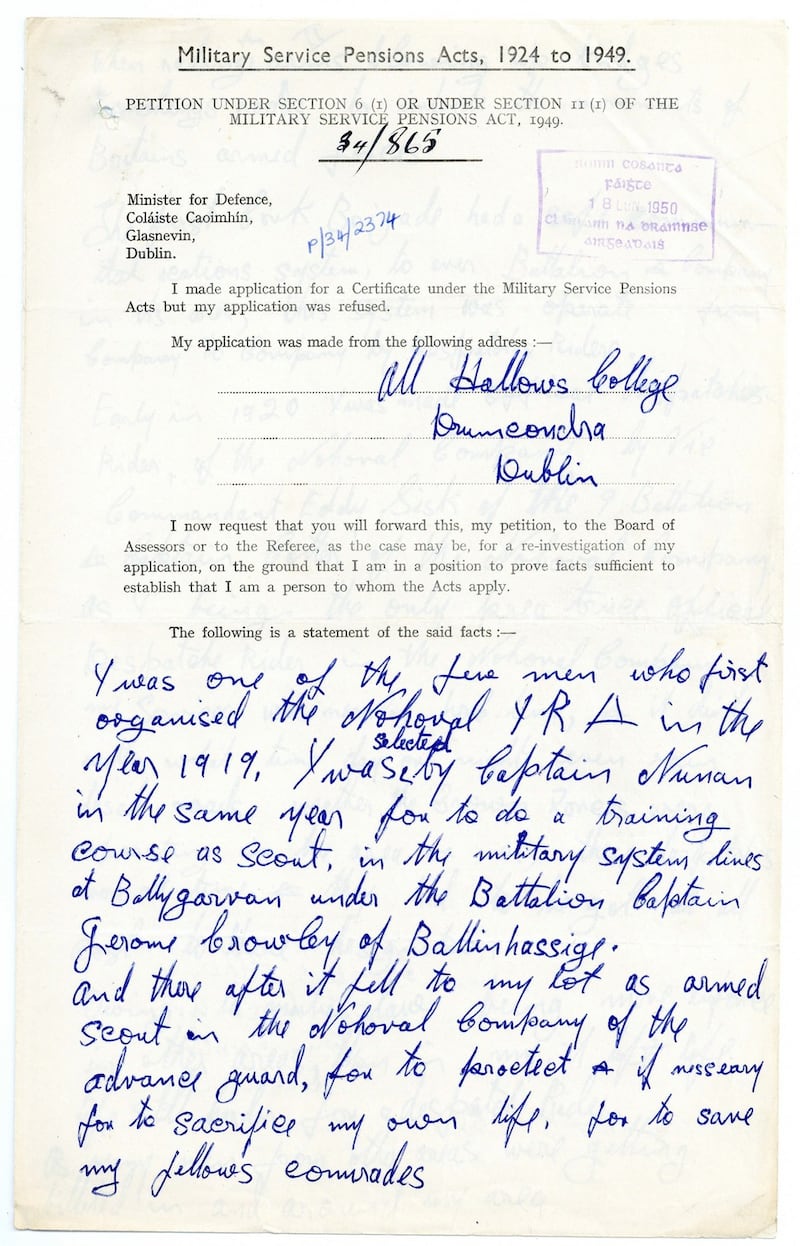 Military Service Pensions Acts, 1924 to 1949.
PETITION UNDER SECTION 6 (1) OR UNDER SECTION 11 (1) OF THE
MILITARY SERVICE PENSIONS ACT, 1949.
34/865
COSANTA
FÁIGTE
18 LUN 1950
NA BRAINNSE
AIRGEADAIS
Minister for Defence,
Coláiste Caoimhín,
Glasnevin,
Dublin.
P/34/2374
I made application for a Certificate under the Military Service Pensions
Acts but my application was refused.
My application was made from the following address :—
All Hallows College
Drumcondra
Dublin
I now request that you will forward this, my petition, to the Board of
Assessors or to the Referee, as the case may be, for a re-investigation of my
application, on the ground that I am in a position to prove facts sufficient to
establish that I am a person to whom the Acts apply.
The following is a statement of the said facts :—
I was one of the few men who first
organised the Nohoval I R A in the
year 1919. I was selected by Captain Nunan
in the same year for to do a training
course as scout, in the military system lines
at Ballygarvan under the Battalion Captain
Jerome Crowley of Ballinhassige.
And there after it fell to my lot as armed
scout in the Nohoval Company of the
advance guard, for to proctect if nesseary
for to sacrifice my own life, for to save
my fellows comrades